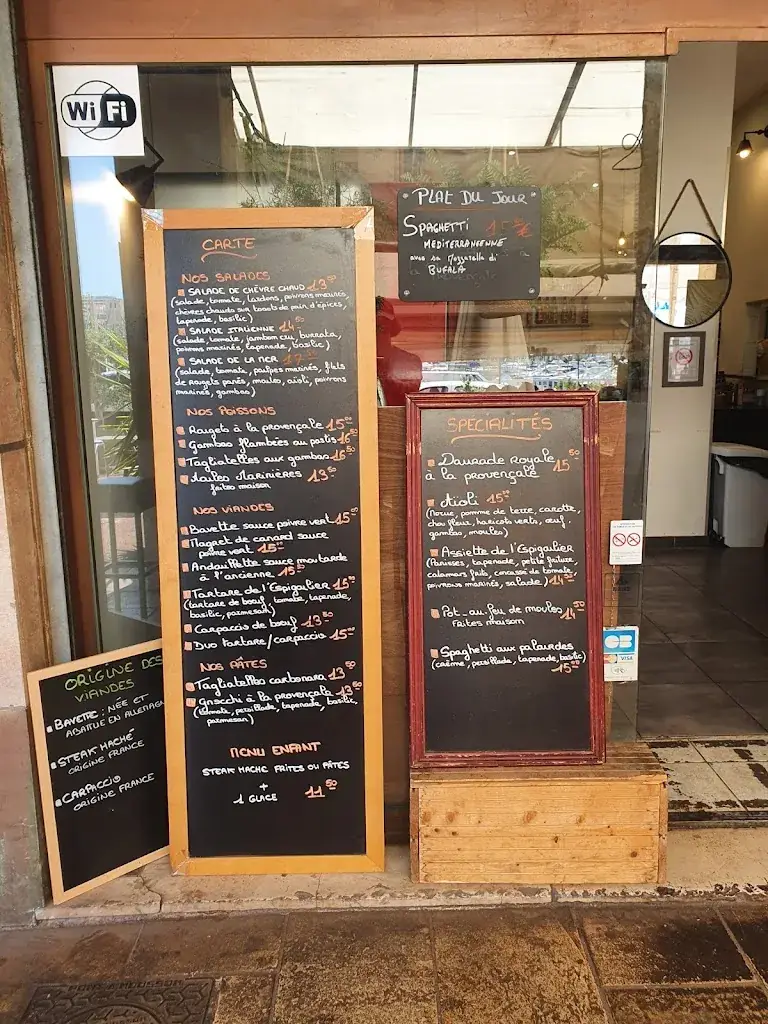 WiFi
PLAT DU JOUR
SPAGHETTI
MEDITERRANEENNE
avec sa Mozzarella di
BUFALA
CARTE
NOS SALADES
SALADE DE CHÈVRE CHAUD 13,50
(salade, tomate, lardons, poivrons marinés,
chèvres chauds sur toasts de pain d'épices,
tapenade, basilic)
SALADE ITALIENNE 14,50
(salade, tomate, jambon cru, burrata,
poivrons marinés, tapenade, basilic)
SALADE DE LA MER
(salade, tomate, poulpes marinés, filets
de rougets panés, moules, aïoli, poivrons
marinés, gambas)
NOS POISSONS
Rougets à la provençale 15,00
Gambas flambées au pastis 16,50
Tagliatelles aux gambas 16,50
Moules Marinières 13,50
faites maison
NOS VIANDES
Bavette sauce poivre vert 15,00
Magret de canard sauce
poivre vert 15,00
Andouillette sauce moutarde
à l'ancienne 15,50
Tartare de l'Espigalier 15,00
(tartare de bœuf, tomate, tapenade,
basilic, parmesan)
Carpaccio de bœuf 13,50
Duo Tartare/carpaccio 15,00
NOS PÂTES
Tagliatelles carbonara 13,50
Gnocchi à la provençale 13,50
(tomate, persillade, tapenade, basilic,
parmesan)
MENU ENFANT
STEAK HACHÉ FRITES OU PÂTES
+
1 GLACE 11,50
SPECIALITÉS
Daurade royale
à la provençale 15,50
Aïoli 15,00
(morue, pomme de terre, carotte,
chou fleur, haricots verts, œuf,
gambas, moules)
Assiette de l'Espigalier
(Panisses, tapenade, petite friture,
calamars frits, concassé de tomate,
poivrons marinés, salade) 14,50
Pot-au-feu de moules 14,50
Faites maison
Spaghetti aux palourdes
(crème, persillade, tapenade, basilic)
15,00
ORIGINE DES
VIANDES
BAVETTE : NÉE ET
ABATTUE EN ALLEMAGNE
STEAK HACHÉ
ORIGINE FRANCE
CARPACCIO
ORIGINE FRANCE
CB
VISA